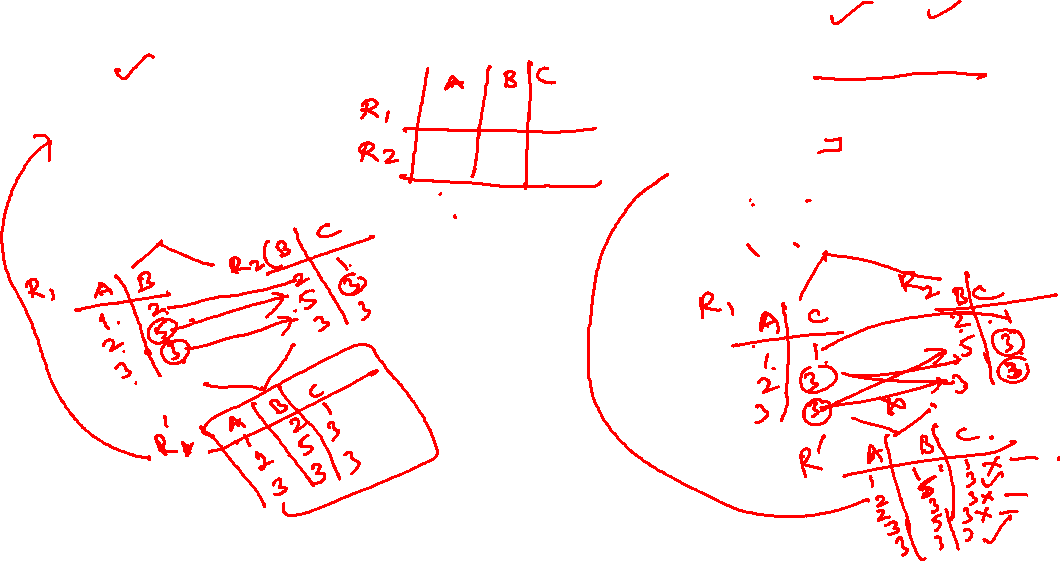 A B C
R1
R2
R1 A B
1. 2.
2. 5
3. 3
R2 B C
2 1.
5 3
3 3
R' A B C
1 2 1
2 5 3
3 3 3
R1 A C
1. 1.
2 3
3 3
R2 B C
2. 1
5 3
3 3
R' A B C.
1 1 ×
2 3 ✓
2 3 3 ×
3 5 3 ×
3 3 3 ✓